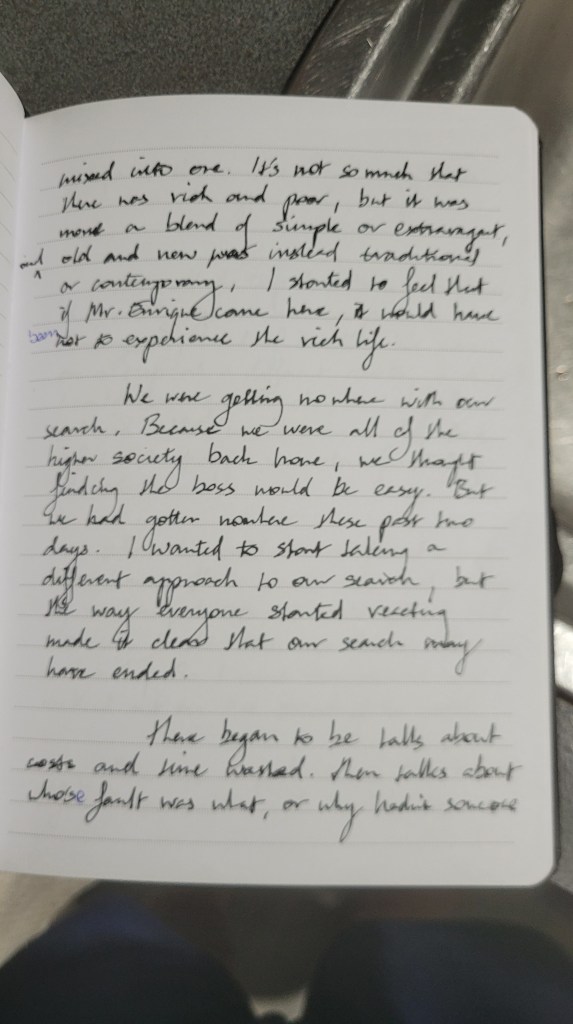 mixed into one. It's not so much that
there was rich and poor, but it was
more a blend of simple or extravagant,
and old and new was instead traditional
or contemporary, I started to feel that
if Mr. Enrique came here, it would have
been not to experience the rich life.
We were getting nowhere with our
search. Because we were all of the
higher society back home, we thought
finding the boss would be easy. But
we had gotten nowhere these past two
days. I wanted to start taking a
different approach to our search, but
the way everyone started reacting
made it clear that our search may
have ended.
There began to be talks about
costs and time wasted. Then talks about
whose fault was what, or why hadn't someone